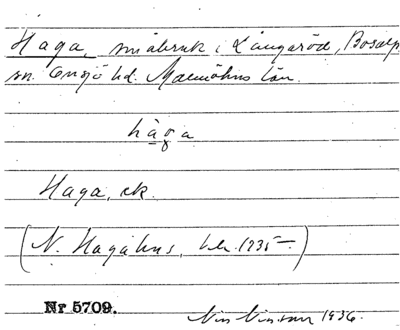 Haga, småbruk i Långaröd, Bosarp
sn. Onsjö hd. Malmöhus län.
håga
Haga, ek.
(N. Hagahus, hek. 1235—)
Nr 5709.
Nils Nilsson 1936.